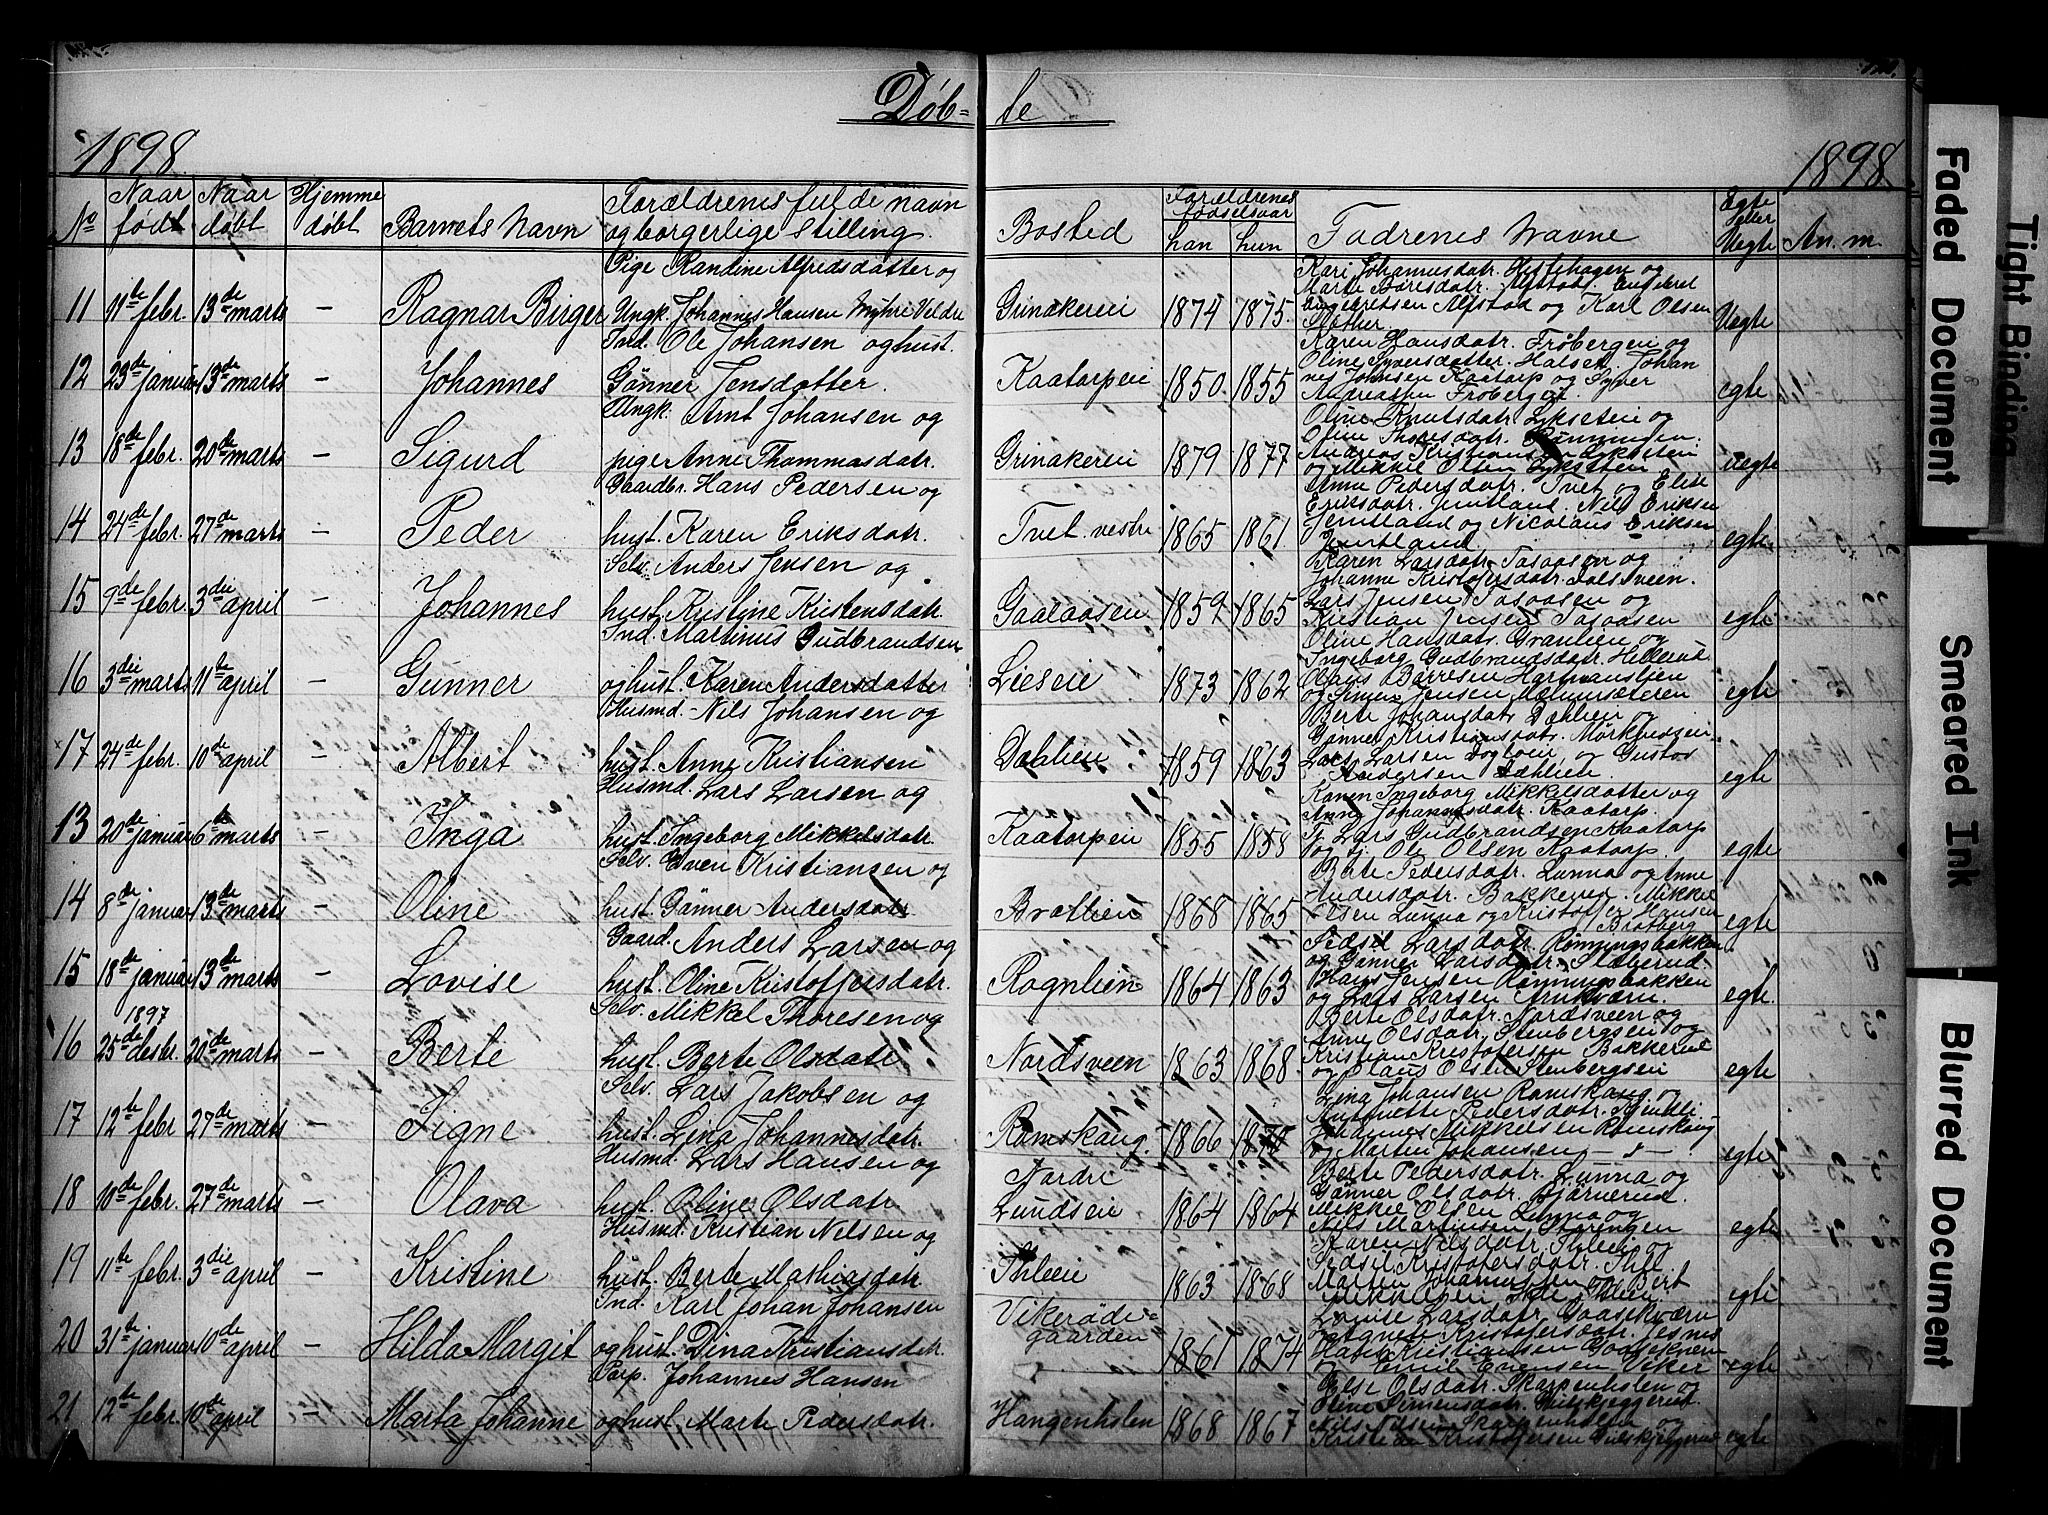 Døb- te
1898 1898
No Naar født Naar døbt Hjemme døbt Barnets Navn Forældrenes fulde navn og borgerlige stilling. Bosted Forældrenes fødselsaar han hun Fadrenes Navne Egte eller Uegte An. m.
11 11te febr. 13de marts — Ragnar Birger Pige Randine Alfredsdatter og
Ungk. Johannes Hansen Myhre Veldre Grinakereie 1874 1875. Uegte
Kari Johannesdatr. og
Alfstad og Karl Olsen
12 23de januar 13de marts — Johannes Ind. Ole Johansen og hust.
Gønner Jensdatter. Kaatorpeie 1850. 1855 egte
Karen Hansdatr. Frøbergen og
Oline Syversdatter. Halset. Johan
nes Johnsen Kaatorp og Syver
Andreasen Frøberget.
13 18de febr. 20de marts — Sigurd Ungk. Arnt Johansen og
pige Anne Thommasdatr. Grinakereie 1879 1877 uegte
Oline Knutsdatr. og
Oline Thoresdatr. Rønningen.
Andreas Kristiansen
og Mikkel Olsen
14 24de febr. 27de marts — Peder Gaardbr. Hans Pedersen og
hust. Karen Eriksdatr. Tvet vestre 1865 1861 egte
Anne Pedersdatr. Tvet og Elise
Eriksdatr. Jemtland. Nils Eriksen
Jemtland og Nicolaus Eriksen
Jemtland
15 9de febr. 3die april — Johannes Selv. Anders Jensen og
hust. Kristine Kristensdatr. Gaalaasen 1859 1865 egte
Karen Larsdatr. og
Johanne Kristofersdatr.
Lars Jensen og
Kristian Jensen
16 3die marts 11te april — Gunner Ind. Martinus Gudbrandsen
og hust. Karen Andersdatter Lieseie 1873 1862 egte
Oline Hansdatr. Granlien og
Ingeborg Gudbrandsdatr. Hillerud
Olaus Børresen
og Simen Jensen
17 24de febr. 10de april — Albert Husmd. Nils Johansen og
hust. Anne Kristiansen Dæhlien 1859 1863 egte
Berte Johansdatr. Dæhlien og
Gønner Kristiansdatr.
Lars Larsen og Gustav
Andersen Dæhlien.
13 20de januar 6te marts — Inga Husmd. Lars Larsen og
hust. Ingeborg Mikkelsdatr. Kaatorpeie 1855 1858 egte
Karen Ingeborg Mikkelsdatter og
Anne Johannesdatr. Kaatorp.
Tj. Lars Gudbrandsen Kaatorp
og tj. Ole Olsen Kaatorp.
14 8de januar 13de marts — Oline Selv. Even Kristiansen og
hust. Gønner Andersdatr. Bratlien 1868 1865 egte
Berte Pedersdatr. Lunna og Anne
Andersdatr. Bakkerud. Mikkel
Olsen Lunna og Kristoffer Hansen
Bratberg
15 18de januar 13de marts — Lovise Gaard. Anders Larsen og
hust. Oline Kristoffersdatr. Rognlien 1864 1863 egte.
Sidsel Larsdatr. Rønningsbakken
og Gønner Larsdatr. Staberud
Hans Jensen Rønningsbakken
og Lars Larsen
16 1897 25de desbr. 20de marts — Berte Selv. Mikkel Thoresen og
hust. Berte Olsdatr. Nordsveen 1863 1868 egte
Berte Olsdatr. Nordsveen og
Anne Olsdatr. Stenbergsen og
Kristian Kristofersen Bakkerud
og Olaus Olsen Stenbergsen
17 12te febr 27de marts — Signe Selv. Lars Jakobsen og
hust. Lina Johannesdatr. Ramskaug 1866 egte
Lina Johansen Ramskaug og
Antonette Pedersdatr.
Johannes Mikkelsen Ramskaug
og Martin Johansen —"—
18 10de febr. 27de marts — Olava Husmd. Lars Hansen og
hust. Oline Olsdatr. Nordre Lundseie 1864 1864 egte
Berte Pedersdatr. Lunna og
Gønner Olsdatr. Bjørnerud.
Mikkel Olsen Lunna og
Nils Martinsen
19 11te febr. 3die april — Kristine Husmd. Kristian Nilsen og
hust. Berte Mathiasdatr. Ihleeie 1863 1868 egte
Karen Nilsdatr. Ihleeie og
Sidsel Kristofersdatr. Ihle.
Martin Johannessen og Bert
20 31te januar 10de april — Hilda Margit Ind. Karl Johan Johansen
og hust. Dina Kristiansdatr. Vikerødegaarden 1861 1874 egte
Lovise Larsdatr. Gaasekværn
Agnete Kristofersdatr.
Kristiansen Gaasekværn
Emil Evensen Viker
21 12te febr. 10de april — Marta Johanne Parp. Johannes Hansen
og hust. Marte Pedersdatr. Hangenholen 1868 1867 egte
Else Olsdatr. Skarpenholen og
Oline Simensdatr.
Nils Nilsen Skarpenholen og
Kristian Kristofersen
Faded Document
Tight Binding
Smeared Ink
Blurred Document